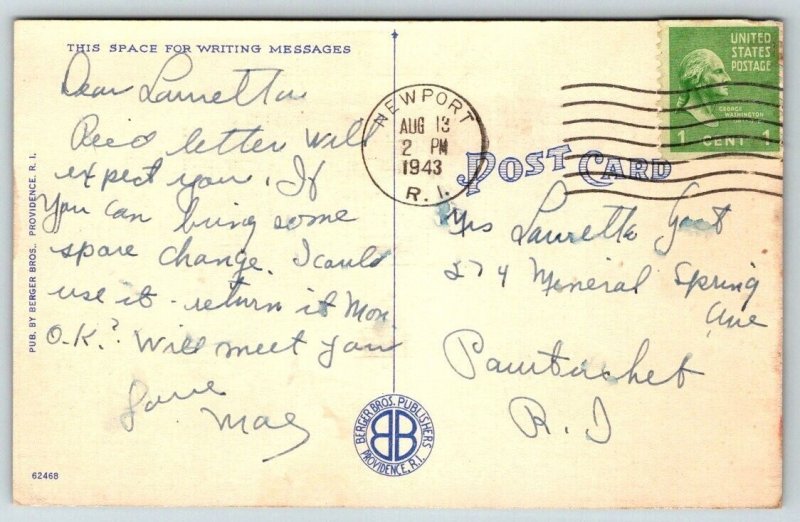 THIS SPACE FOR WRITING MESSAGES
Dear Lauretta
Rec'd letter will
expect you. If
You can bring some
spare change. I could
use it - return it Mon
O.K.? Will meet you
Love
Mae
PUB. BY BERGER BROS. PROVIDENCE, R. I.
62468
NEWPORT
AUG 13
2 PM
1943
R. I.
UNITED
STATES
POSTAGE
GEORGE
WASHINGTON
1 CENT 1
POST CARD
Lauretta
274 Mineral Spring
Ave
Pawtucket
R. I
BERGER BROS. PUBLISHERS
BB
PROVIDENCE, R.I.